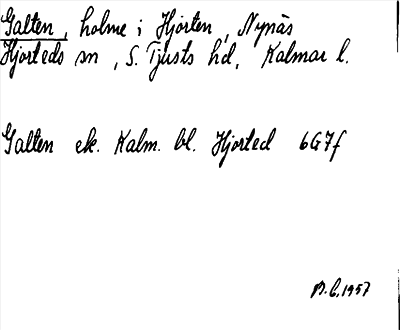 Galten, holme i Hjorten, Nynäs
Hjorteds sn, S. Tjusts hd, Kalmar l.
Galten ek. Kalm. bl. Hjorted 6G7f
B.C. 1957